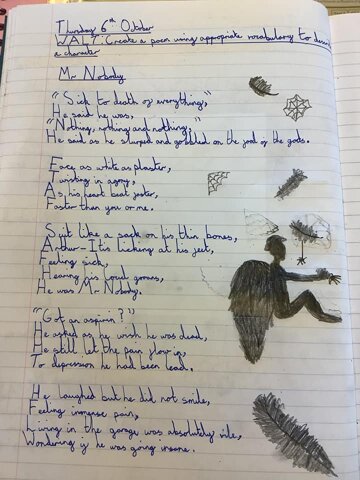 Thursday 6th October
WALT: Create a poem using appropriate vocabulary to
a character
Mr Nobody
"Sick to death of everything,"
He said he was,
"Nothing, nothing and nothing."
He said as he slurped and gobbled on the food of the gods.
Face as white as plaster,
Twisting in agony,
As his heart beat faster,
Faster than you or me.
Suit like a sack on his thin bones,
Arthur-Itis licking at his feet,
Feeling sick,
Hearing his loud groans,
He was Mr Nobody.
"Got an aspirin?"
He asked as he wish he was dead,
He still let the pain flow in,
To depression he had been lead.
He laughed but he did not smile,
Feeling imense pain,
Living in the garage was absolutely vile,
Wondering if he was going insane.